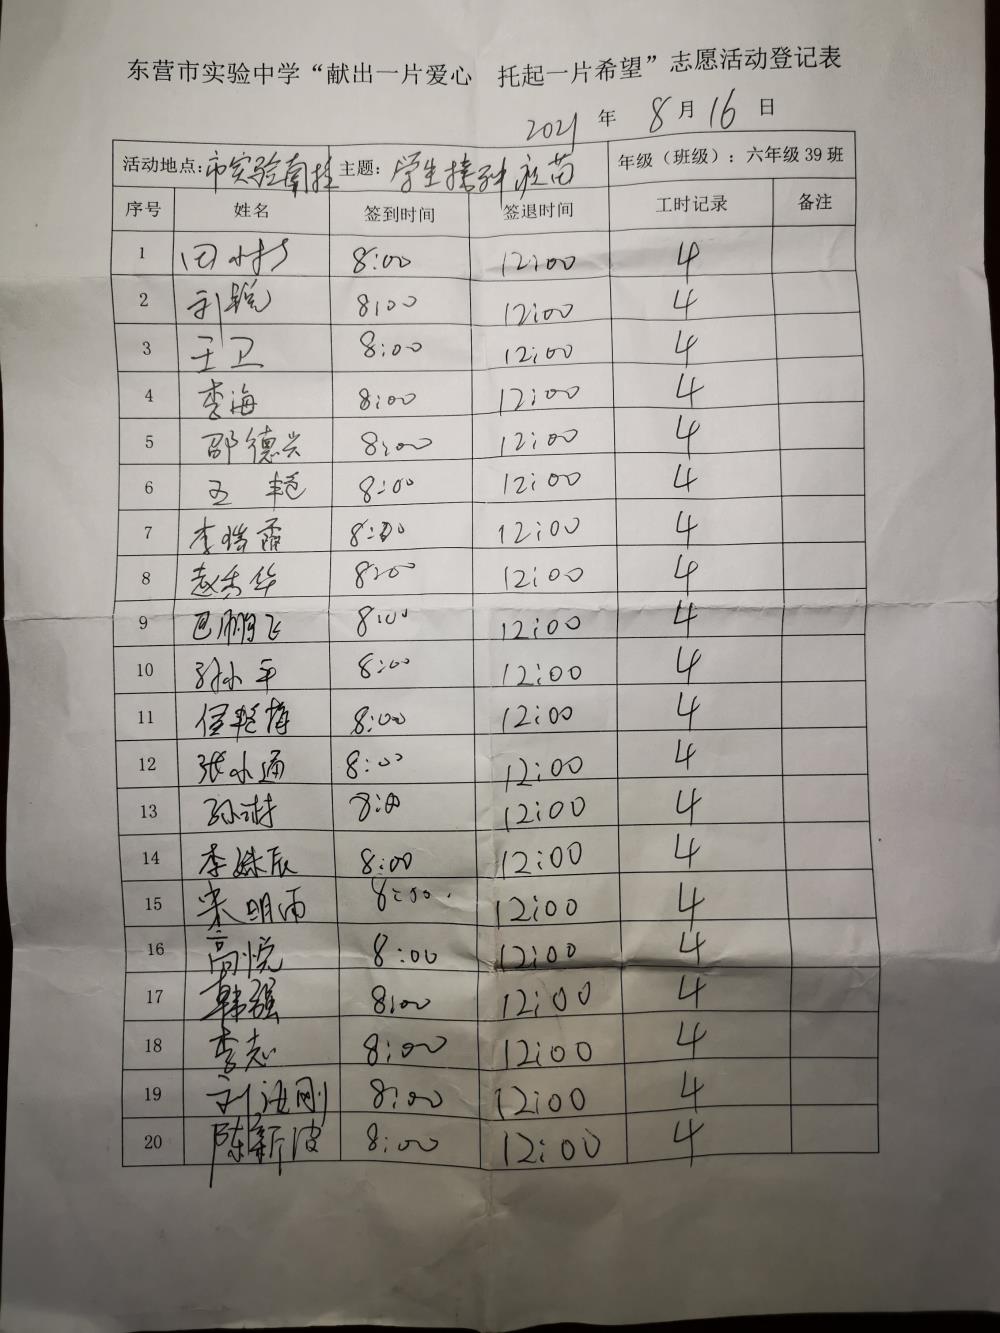 东营市实验中学“献出一片爱心 托起一片希望”志愿活动登记表
2021 年 8 月 16 日
活动地点:市实验南校 主题:学生接种疫苗 年级（班级）:六年级39班
序号 姓名 签到时间 签退时间 工时记录 备注
1 田 8:00 12:00 4
2 刘锐 8:00 12:00 4
3 王卫 8:00 12:00 4
4 李海 8:00 12:00 4
5 邵德兴 8:00 12:00 4
6 王艳 8:00 12:00 4
7 李瑞霞 8:00 12:00 4
8 赵东华 8:00 12:00 4
9 巴鹏飞 8:00 12:00 4
10 孙小平 8:00 12:00 4
11 侯艳梅 8:00 12:00 4
12 张小通 8:00 12:00 4
13 孙 8:00 12:00 4
14 李姝辰 8:00 12:00 4
15 宋明雨 8:00 12:00 4
16 高悦 8:00 12:00 4
17 韩强 8:00 12:00 4
18 李志 8:00 12:00 4
19 刘海刚 8:00 12:00 4
20 陈新波 8:00 12:00 4